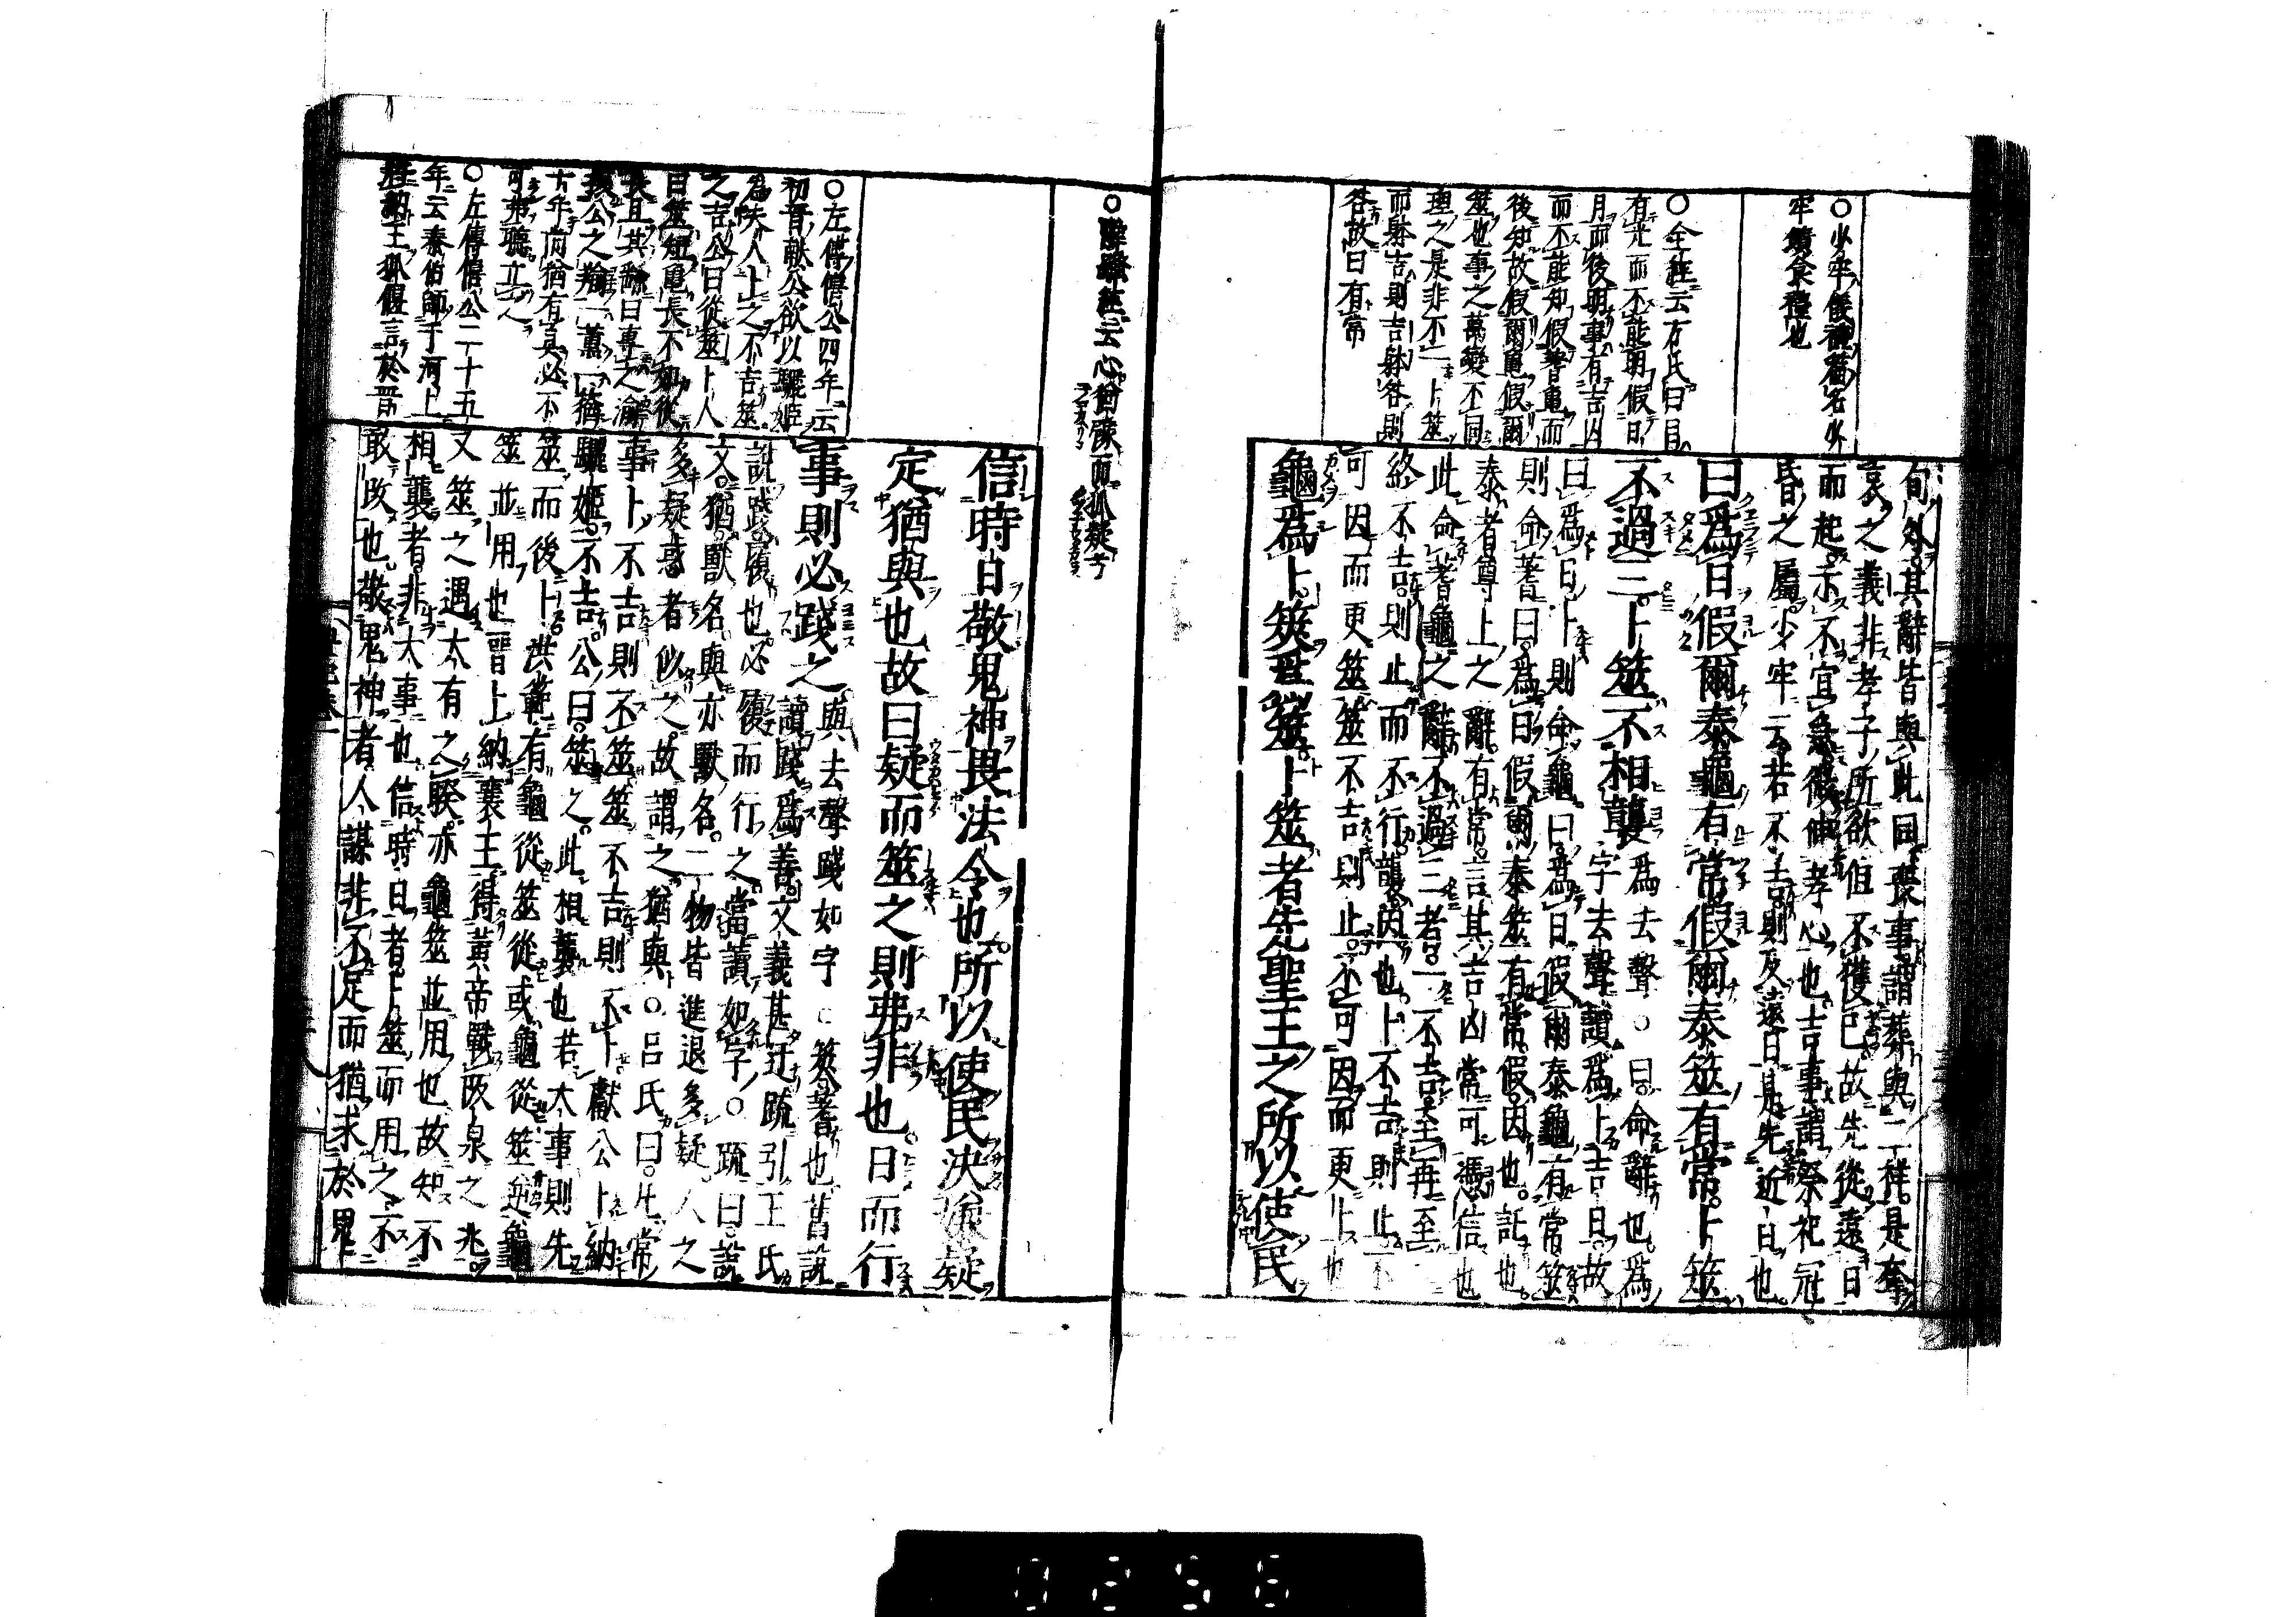 旬外其辭皆與此同喪事謂葬與二祥是奪
哀之義非孝子所欲但不獲已故先從遠日
而起示不宜急微伸孝心也吉事謂祭祀冠
昏之屬少牢云若不吉則及遠日是先近日也
曰爲日假爾泰龜有常假爾泰筮有常卜筮
不過三卜筮不相襲爲去聲○曰命辭也爲
字去聲讀爲卜吉日故
曰爲日卜則命龜曰爲日假爾泰龜有常筮
則命蓍曰爲日假爾泰筮有常假因也託也
泰者尊上之辭有常言其吉凶常可憑信也
此命蓍龜之辭不過三者一不吉至再至三
終不吉則止而不行襲因也卜不吉則止不
可因而更筮筮不吉則止不可因而更卜也
龜爲卜筴爲筮卜筮者先聖王之所以使民
○少牢儀禮篇名少
牢饋食禮也
○全註云方氏曰目
有光而不能明假日
月而後明事有吉凶
而不能知假蓍龜而
後知故假爾龜假爾
筮也事之萬變不同
理之是非不一卜筮
而
吉則吉
咎則
咎故曰有常
信時日敬鬼神畏法令也所以使民決嫌疑
定猶與也故曰疑而筮之則弗非也日而行
事則必踐之與去聲踐如字○筴蓍也舊說
讀踐爲善文義甚迂疏引王氏
說踐履也必履而行之當讀如字○疏曰說
文猶獸名與亦獸名二物皆進退多疑人之
多疑惑者似之故謂之猶與○呂氏曰凡常
事卜不吉則不筮筮不吉則不卜獻公卜納
驪姬不吉公曰筮之此相襲也若大事則先
筮而後卜洪範有龜從筮從或龜從筮逆龜
筮並用也晉卜納襄王得黃帝戰阪泉之兆
又筮之遇大有之睽亦龜筮並用也故知不
相襲者非大事也信時日者卜筮而用之不
敢改也敬鬼神者人謀非不足而猶求於鬼
○
註云心猶豫而狐疑
○左傳僖公四年云
初晉獻公欲以驪姬
爲夫人卜之不吉筮
之吉公曰從筮卜人
曰筮短龜長不如從
長且其繇曰專之渝
攘公之羭一薰一蕕
十年尚猶有臭必不
可弗聽立之
○左傳僖公二十五
年云秦伯師于河上
將納王狐偃言於晉
0256